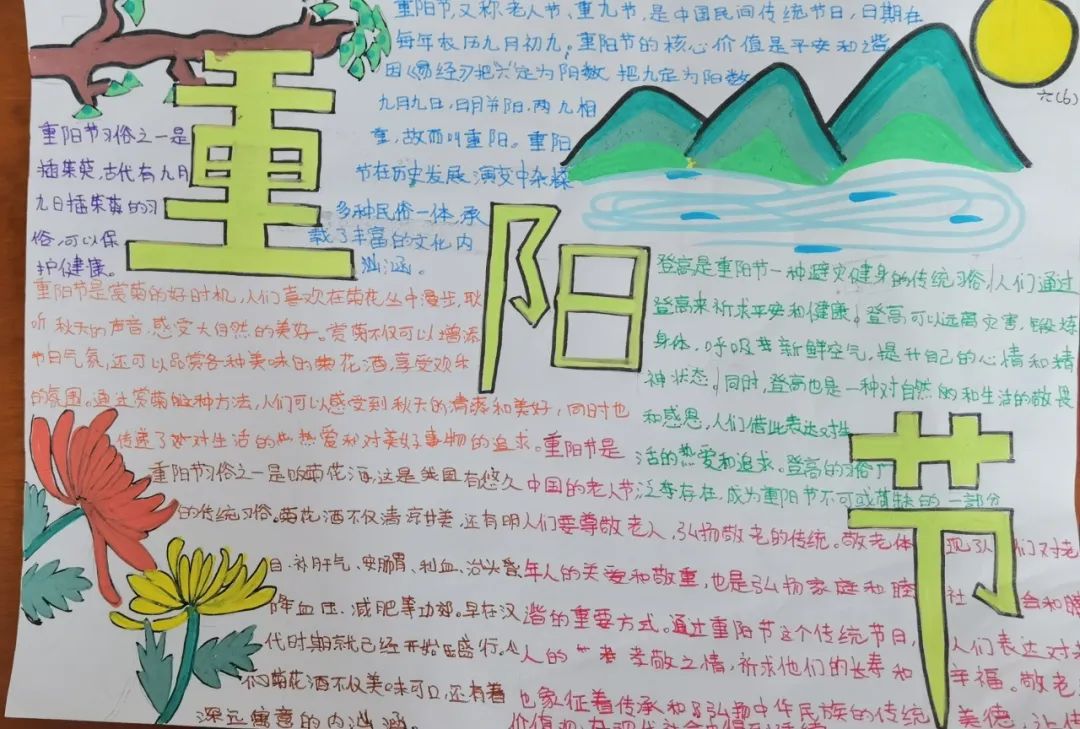 重阳节
重阳节,又称老人节、重九节,是中国民间传统节日,日期在
每年农历九月初九。重阳节的核心价值是平安和谐
因《易经》把"六"定为阴数 把九定为阳数
九月九日,日月并阳,两九相
重,故而叫重阳。重阳
节在历史发展演变中杂糅
多种民俗一体,承
载了丰富的文化内
涵。
六(6)
重阳节习俗之一是
插茱萸,古代有九月
九日插茱萸的习
俗,可以保
护健康。
重阳节是赏菊的好时机,人们喜欢在菊花丛中漫步,耿
听秋天的声音,感受大自然的美好。赏菊不仅可以增添
节日气氛,还可以品赏各种美味的菊花酒,享受欢乐
的氛围。通过赏菊这种方法,人们可以感受到秋天的清凉和美好,同时也
传递了对生活的热爱和对美好事物的追求。
登高是重阳节一种避灾健身的传统习俗,人们通过
登高来祈求平安和健康,登高可以远离灾害,锻炼
身体,呼吸新鲜空气,提升自己的心情和精
神状态,同时,登高也是一种对自然的和生活的敬畏
和感恩,人们借此表达对生
活的热爱和追求。登高的习俗广
泛存在,成为重阳节不可或缺的一部分
重阳节习俗之一是喝菊花酒,这是我国有悠久
的传统习俗。菊花酒不仅清凉甘美,还有明
目、补肝气、安肠胃、利血、治头昏
降血压、减肥等功效。早在汉
代时期就已经开始盛行。
菊花酒不仅美味可口,还有着
深远寓意的内涵。
重阳节是
中国的老人节
人们要尊敬老人,弘扬敬老的传统。敬老体现了人们对老
年人的关爱和敬重,也是弘扬家庭和睦 社会和睦
谐的重要方式。通过重阳节这个传统节日,人们表达对老
人的孝敬之情,祈求他们的长寿和幸福。敬老
也象征着传承和弘扬中华民族的传统美德,让